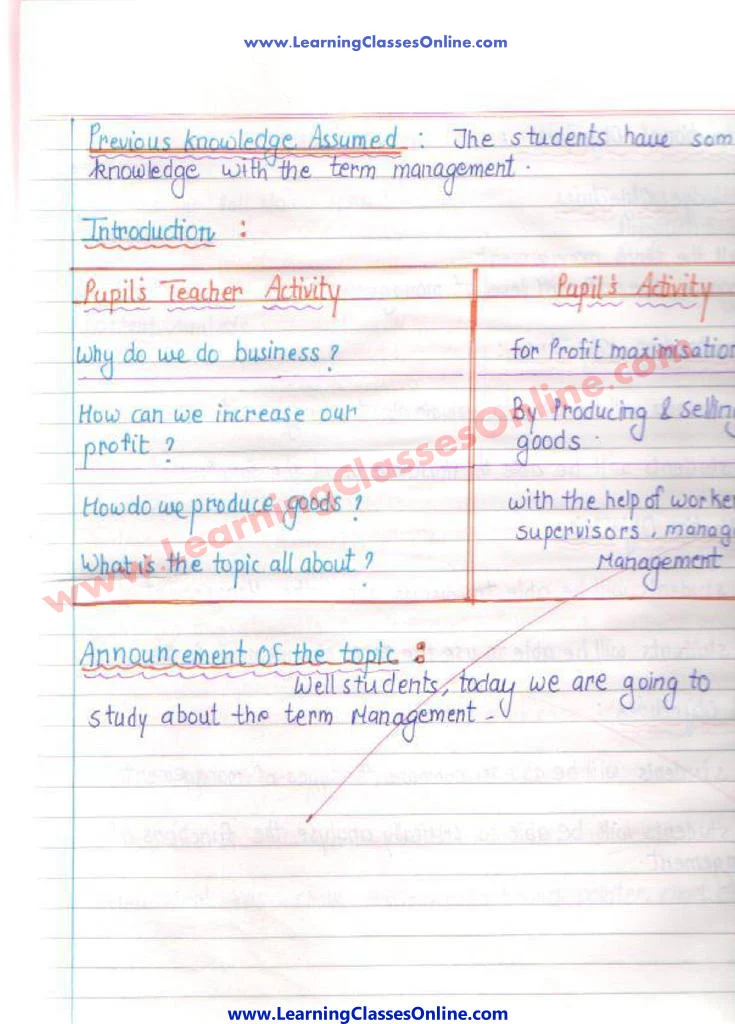 www.LearningClassesOnline.com
Previous Knowledge Assumed : The students have som
knowledge with the term management.
Introduction :
Pupil's Teacher Activity
Pupil's Activity
Why do we do business ?
for Profit maximisation
How can we increase our
profit ?
By Producing & selling
goods .
How do we produce goods ?
with the help of worke
supervisors, manag
What is the topic all about ?
Management
www.LearningClassesOnline.com
Announcement Of the topic :
Well students, today we are going to
study about the term Management -
www.LearningClassesOnline.com